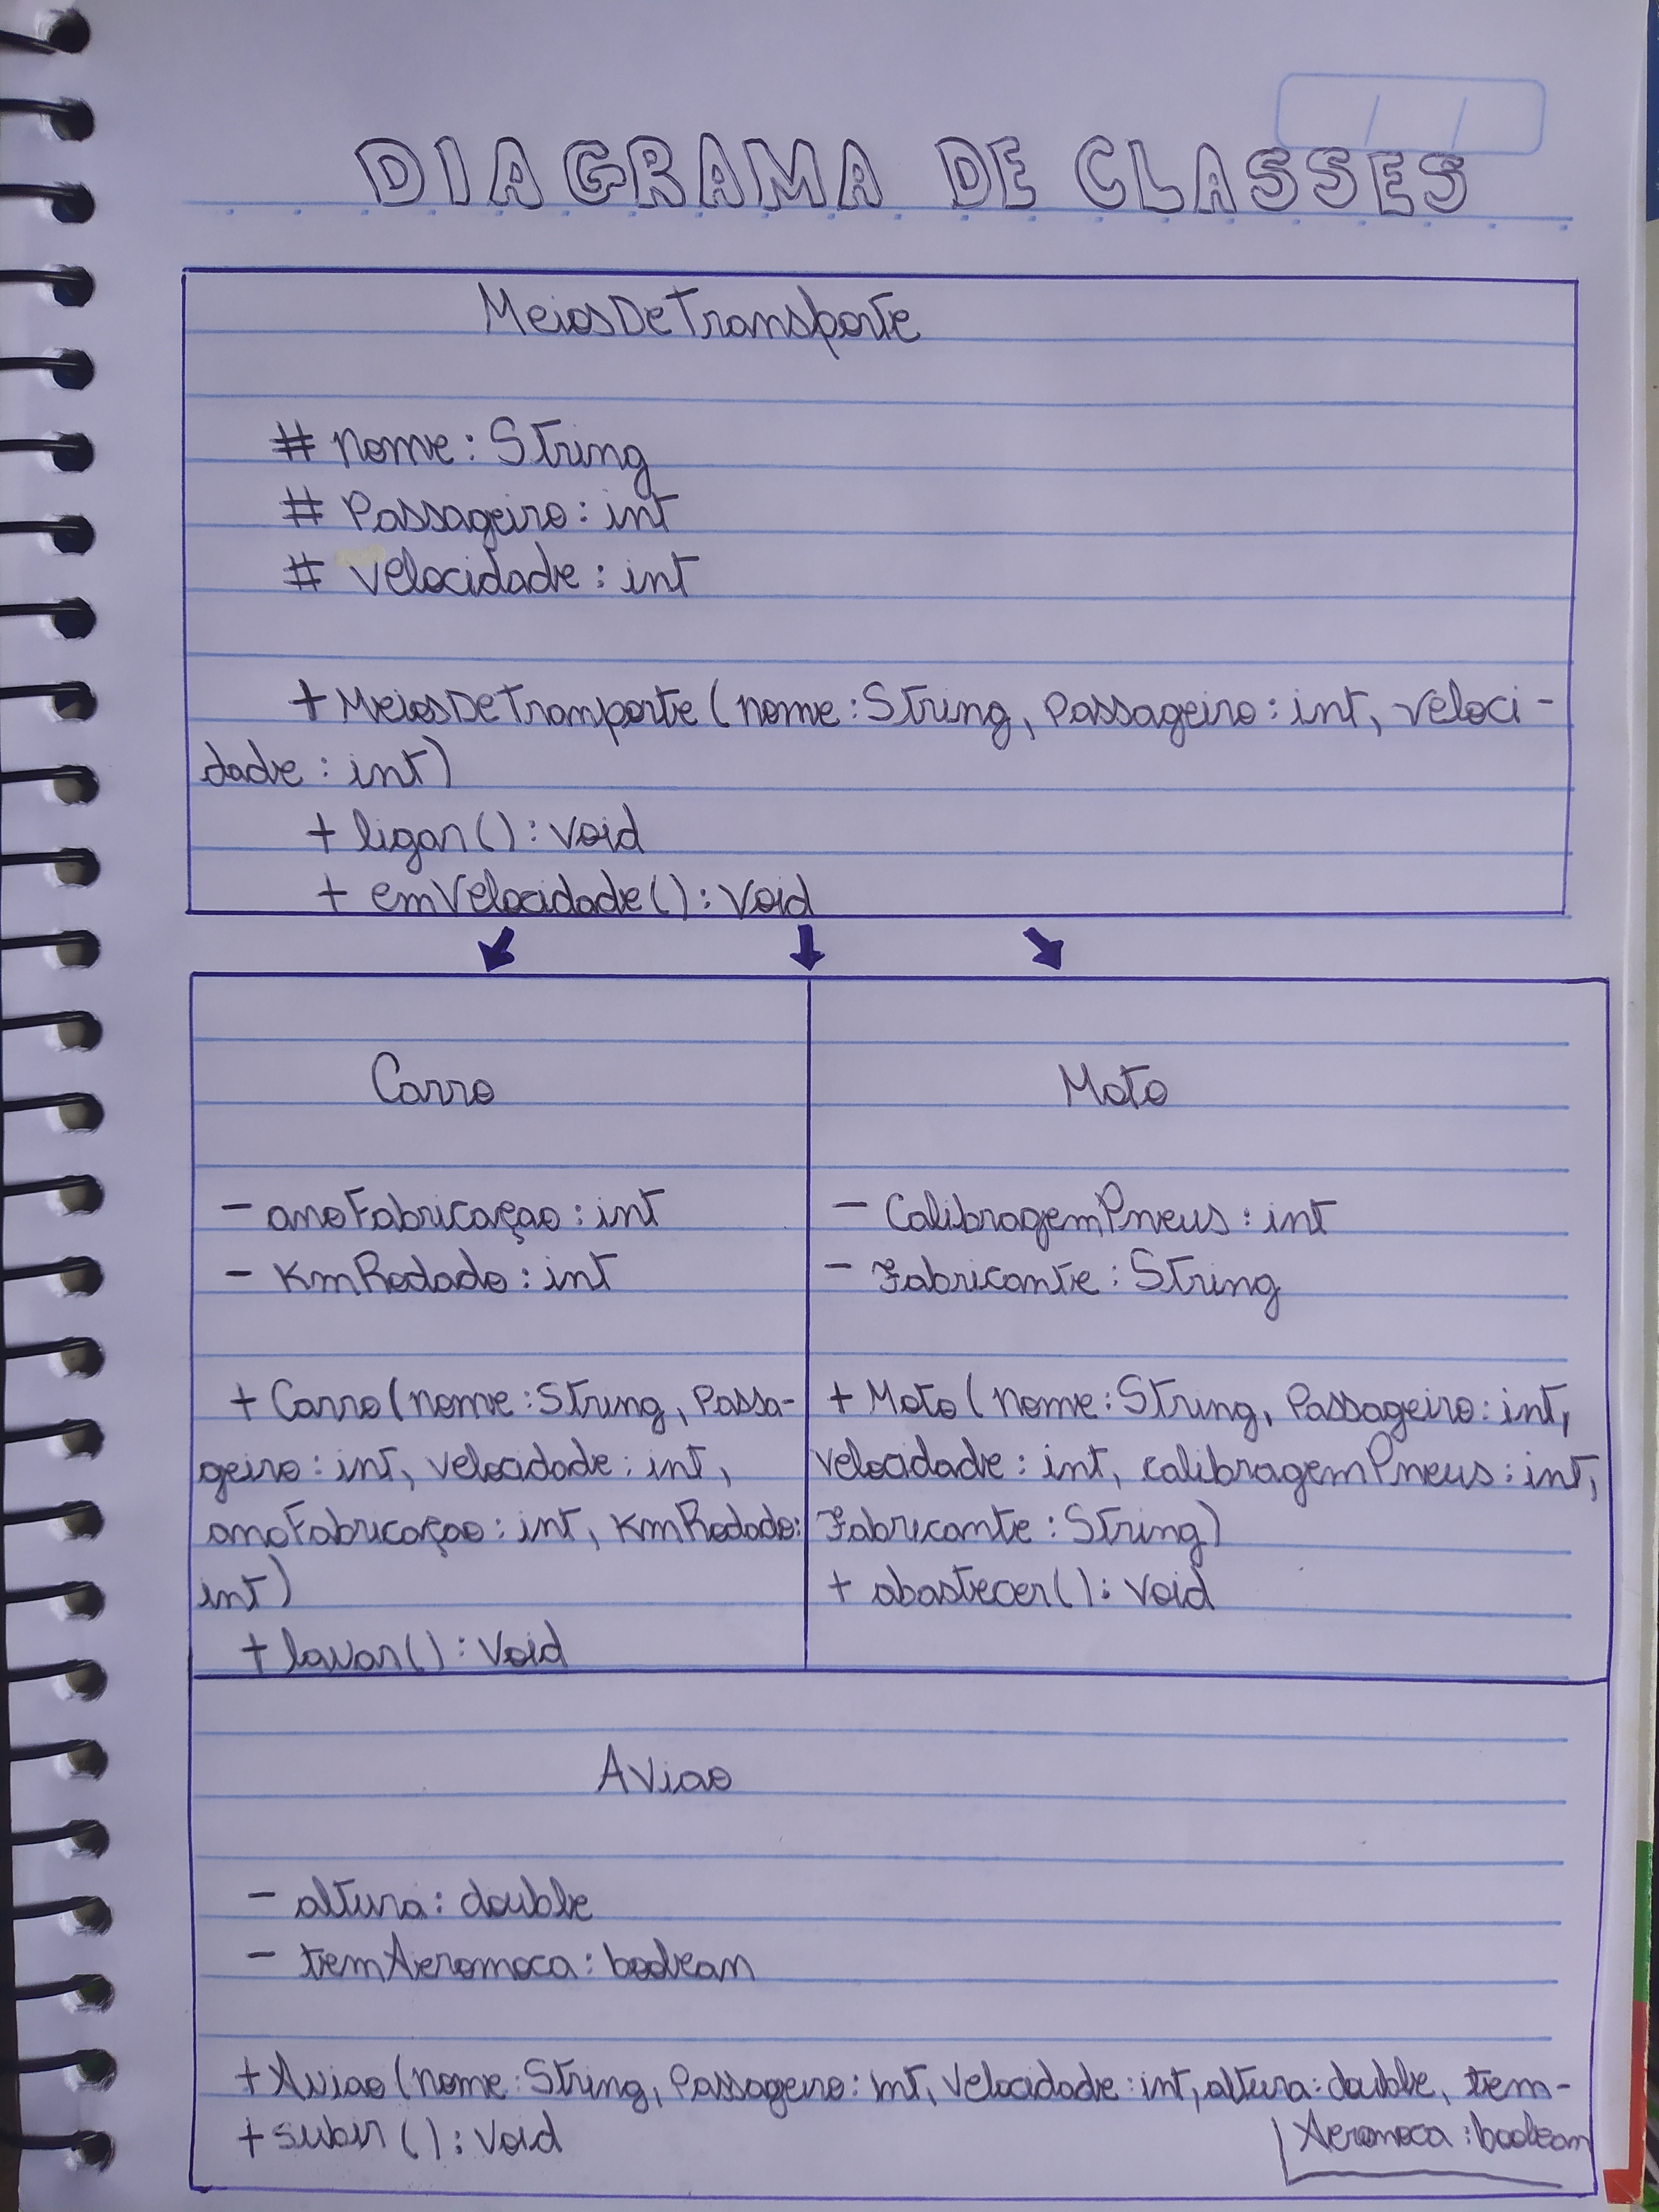 DIAGRAMA DE CLASSES
MeiosDeTransporte
# nome: String
# Passageiro: int
# Velocidade: int
+ MeiosDeTranporte (nome: String, Passageiro: int, veloci-
dade: int)
+ ligar(): Void
+ emVelocidade(): Void
Carro
- anoFabricaçao: int
- KmRodado: int
+ Carro (nome: String, Passa-
geiro: int, velocidade: int,
anoFabricaçao: int, KmRodado:
int)
+ lavar(): Void
Moto
- CalibragemPneus: int
- Fabricante: String
+ Moto (nome: String, Passageiro: int,
Velocidade: int, calibragemPneus: int,
Fabricante: String)
+ abastecer(): Void
Aviao
- altura: double
- temAeromoca: boolean
+ Aviao (nome: String, Passageiro: int, Velocidade: int, altura: double, tem-
Aeromoca: boolean
+ subir(): Void